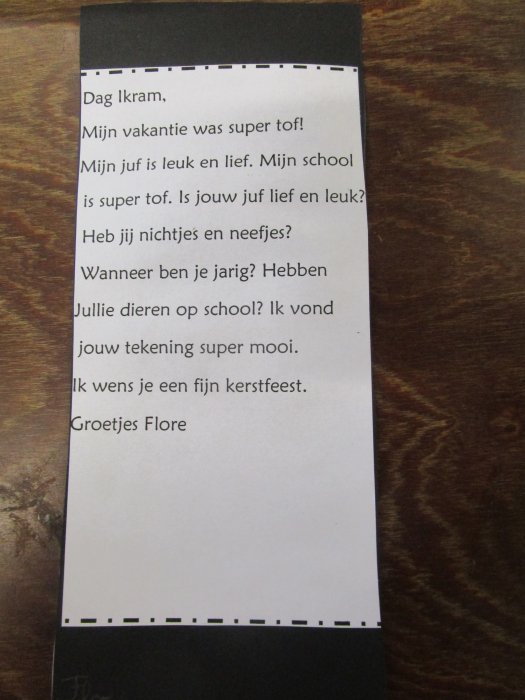 Dag Ikram,
Mijn vakantie was super tof!
Mijn juf is leuk en lief. Mijn school
is super tof. Is jouw juf lief en leuk?
Heb jij nichtjes en neefjes?
Wanneer ben je jarig? Hebben
Jullie dieren op school? Ik vond
jouw tekening super mooi.
Ik wens je een fijn kerstfeest.
Groetjes Flore